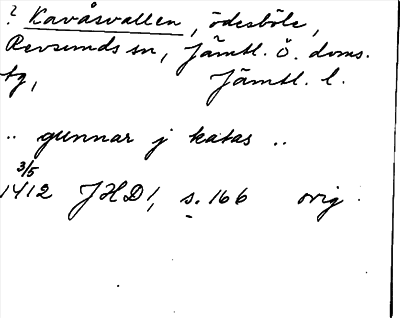 ? Kavåsvallen, ödesböle,
Revsunds sn, Jämtl. ö. doms.
tg, Jämtl. l.
.. gunnar j katas ..
3/5
1412 JHD 1, s. 166 orig.